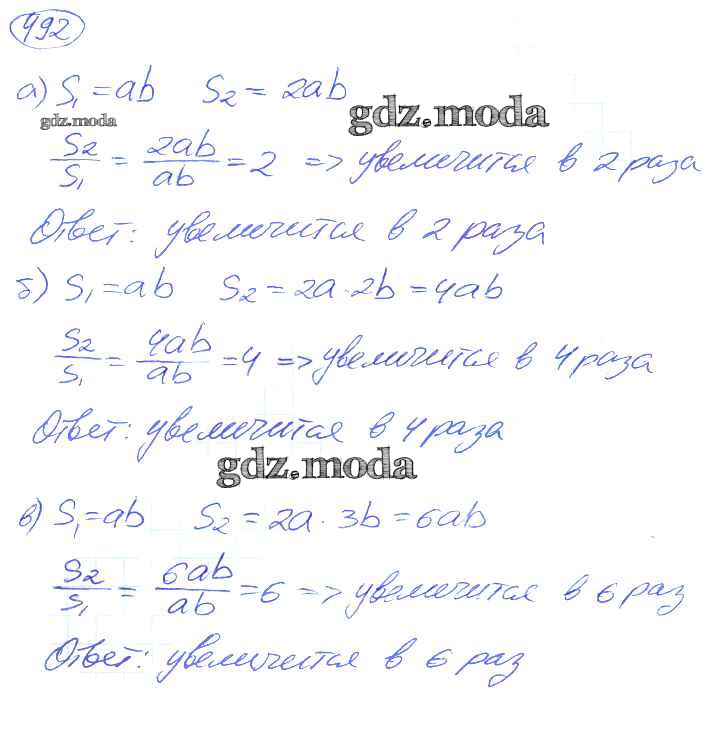 492
а) S₁ = ab S₂ = 2ab
gdz.moda gdz.moda
S₂/S₁ = 2ab/ab = 2 => увеличится в 2 раза
Ответ: увеличится в 2 раза
б) S₁ = ab S₂ = 2a · 2b = 4ab
S₂/S₁ = 4ab/ab = 4 => увеличится в 4 раза
Ответ: увеличится в 4 раза
gdz.moda
в) S₁ = ab S₂ = 2a · 3b = 6ab
S₂/S₁ = 6ab/ab = 6 => увеличится в 6 раз
Ответ: увеличится в 6 раз